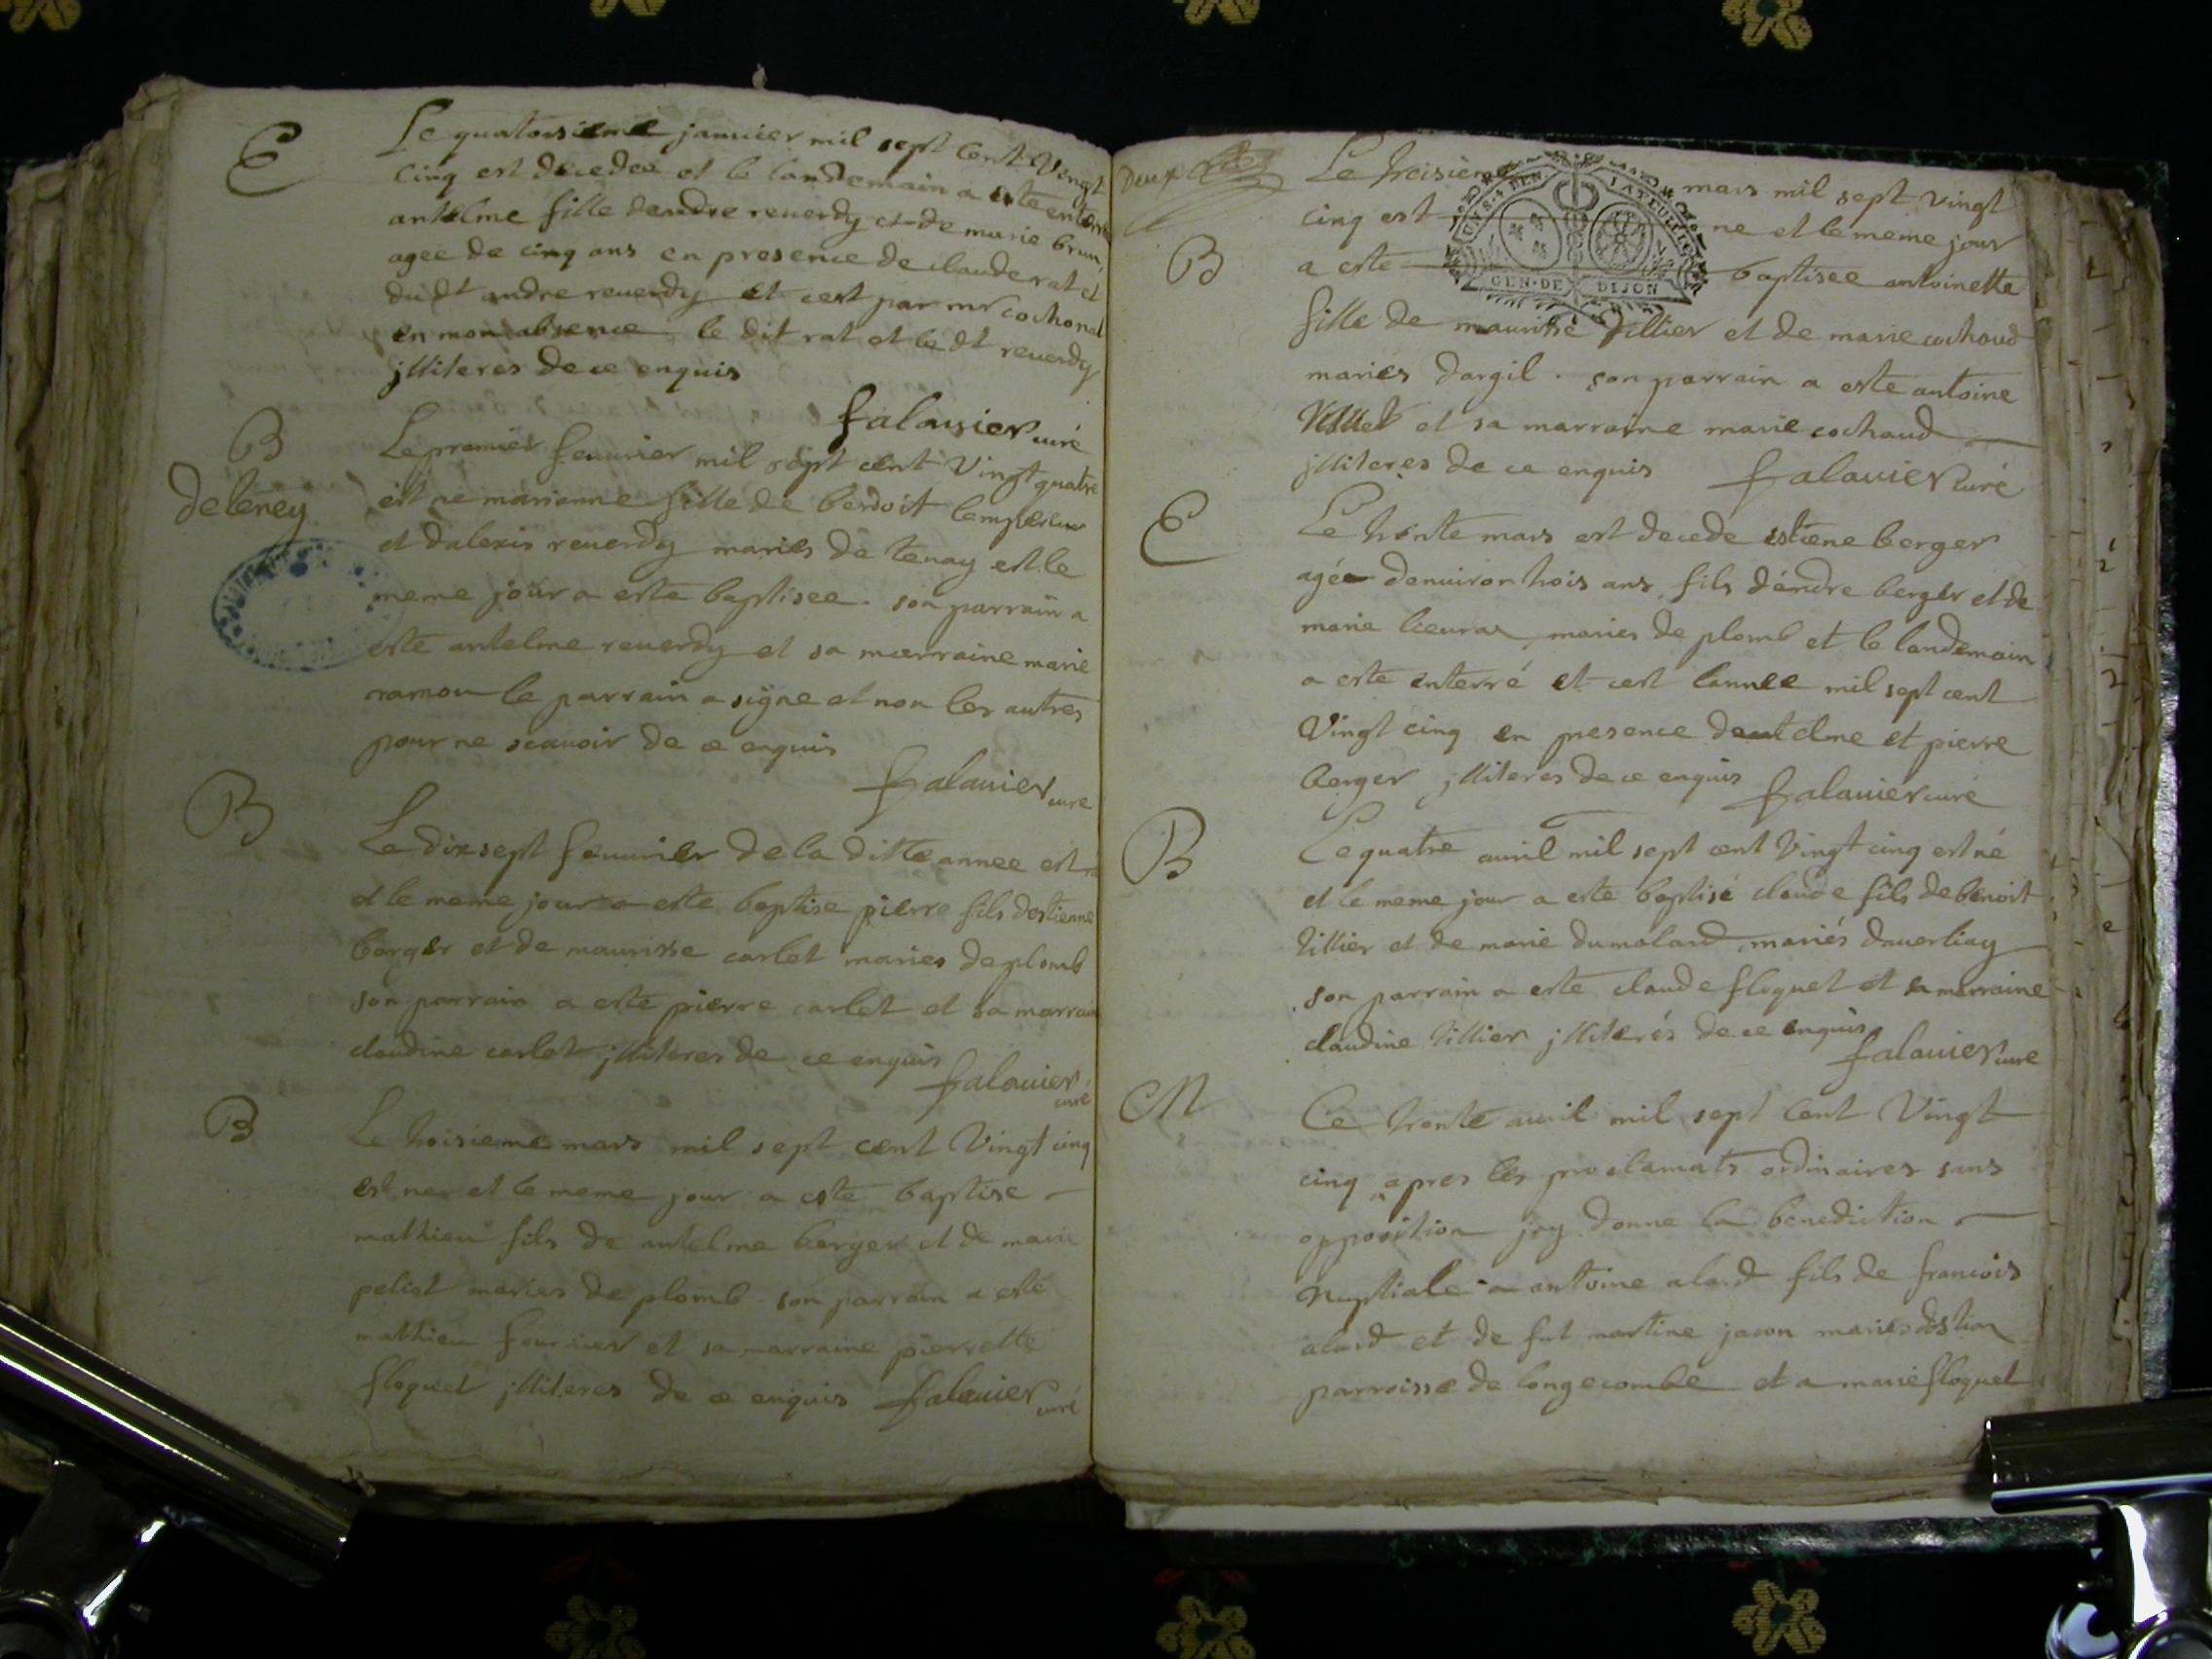 E
Le quatorsieme januier mil sept Cent Vingt
cinq est decedee et le landemain a este enterre
antelme fille dendre reuerdy et de marie brun,
agee de cinq ans en presence de claude rat et
du dt andre reuerdy et cest par mr cochonat
en mon absence le dit rat et le dt reuerdy
jlliteres de ce enquis
falauier curé
B
de leney
Le premier feuurier mil sept cent Vingt quatre
est ne marianne fille de benoit lempereur
et dalexis reuerdy maries de tenay est le
meme jour a este baptisee. son parrain a
este antelme reuerdy et sa marraine marie
ramou le parrain a signe et non les autres
pour ne scauoir de ce enquis
falauier curé
B
Le dixsept feuurier de la ditte annee est
et le meme jour a este baptise pierre fils destienne
berger et de maurisse carlet maries de plomb
son parrain a este pierre carlet et sa marrai
claudine carlet jlliteres de ce enquis
falauier curé
B
Le troisieme mars mil sept cent Vingt cinq
est ne et le meme jour a este baptise
mathieu fils de antelme berger et de marie
peliet maries de plomb son parrain a esté
mathieu fournier et sa marraine pierrette
floquet jlliteres de ce enquis falauier curé
Deux
Le troisieme mars mil sept vingt
GEN. DE DIJON
cinq est ne et le meme jour
B
a este baptisee antoinette
fille de maurisse tillier et de marie cochoud
mariés dargil. son parrain a este antoine
et sa marraine marie cochaud
jlliteres de ce enquis falauier curé
E
Le trente mars est decede estiene berger
agée denuiron trois ans fils dandre berger et de
marie lieuraz maries de plomb et le landemain
a este enterré et cest lannee mil sept cent
Vingt cinq en presence dantelme et pierre
berger jlliteres de ce enquis falauier curé
B
Le quatre auril mil sept cent Vingt cinq est né
et le meme jour a este baptisé claude fils de benoit
tillier et de marie dumolard mariés dauerliay
son parrain a este claude floquet et sa marraine
claudine tillier jlliterés de ce enquis
falauier curé
M
Ce trente auril mil sept Cent Vingt
cinq apres les proclamats ordinaires sans
opposition jay donne la benediction
nuptiale a antoine alard fils de francois
alard et de fut martine jacon maries
parroisse de longecombe et a marie floquet